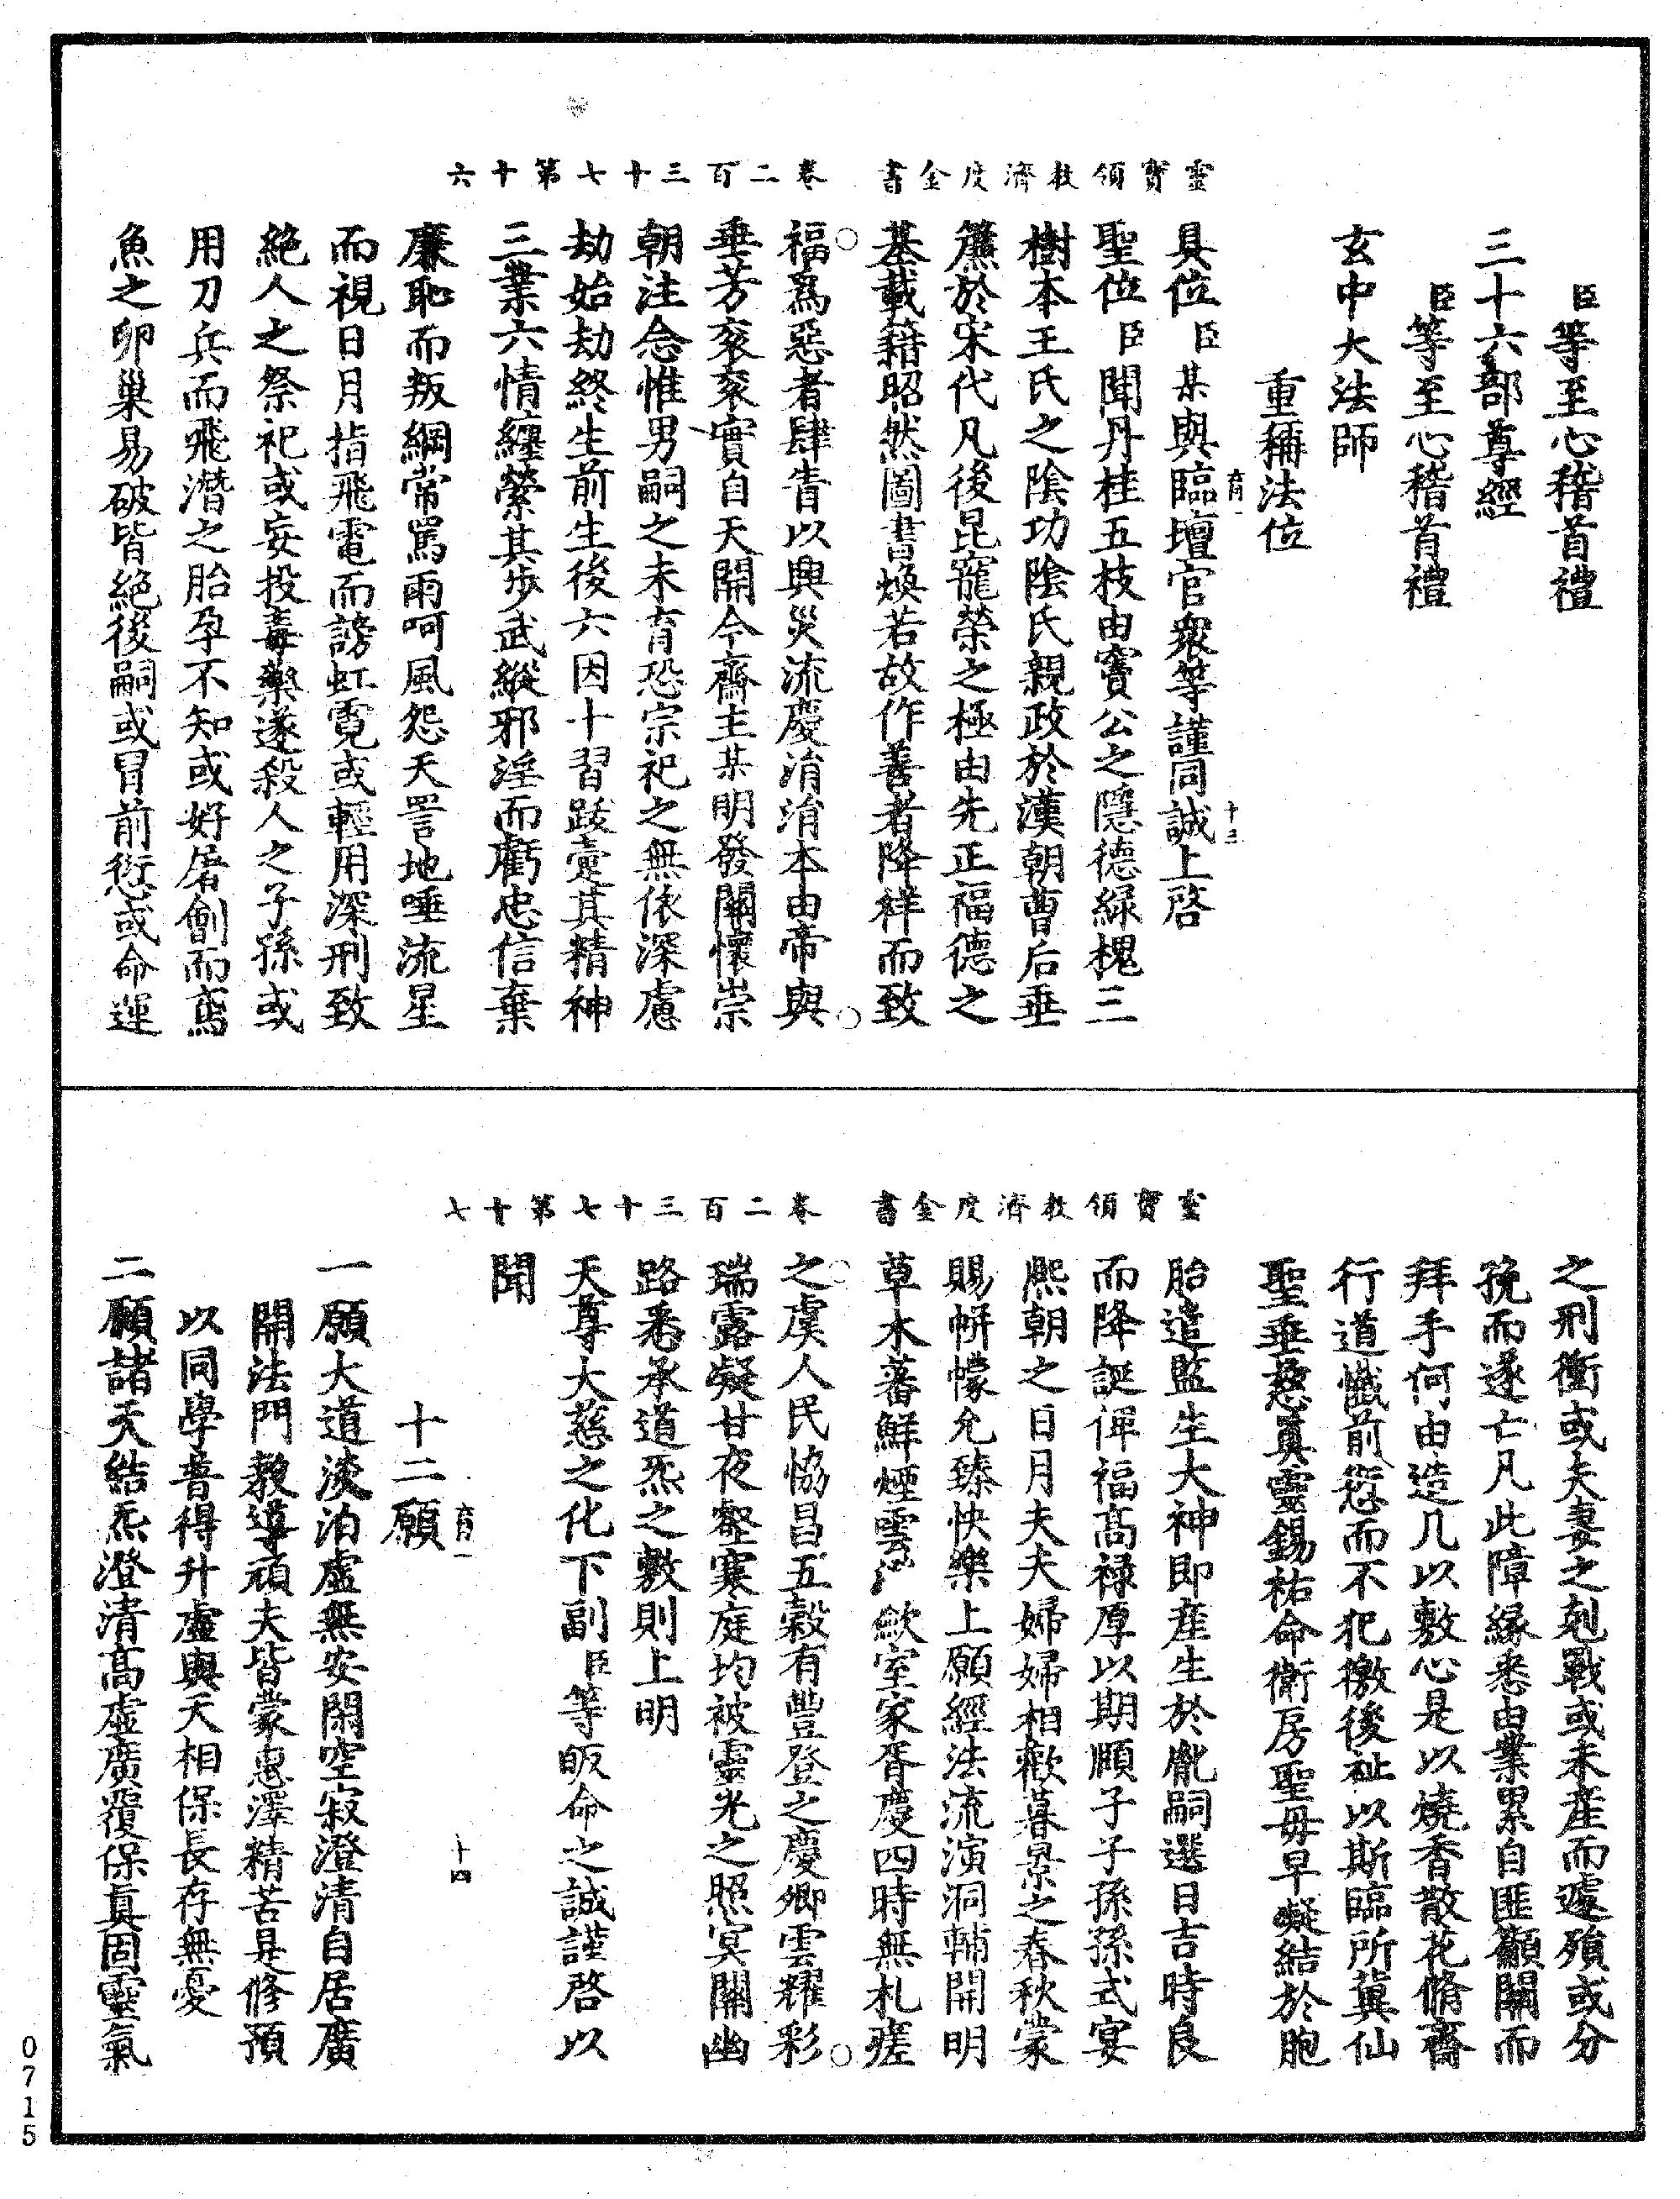 靈寶領教濟度金書　卷二百三十七第十六
臣等至心稽首禮
三十六部尊經
臣等至心稽首禮
玄中大法師
重稱法位
具位臣某與臨壇官衆等謹同誠上啓
育一　十三
聖位臣聞丹桂五枝由竇公之隱德綠槐三
樹本王氏之陰功陰氏親政於漢朝曹后垂
簾於宋代凡後昆寵榮之極由先正福德之
基載籍昭然圖書煥若故作善者降祥而致
福爲惡者肆眚以興災流慶湑湑本由帝與
垂芳袞袞實自天開今齋主某明發關懷崇
朝注念惟男嗣之未育恐宗祀之無依深慮
劫始劫終生前生後六因十習跋疐其精神
三業六情纏縈其步武縱邪淫而虧忠信棄
廉恥而叛綱常罵雨呵風怨天詈地唾流星
而視日月指飛電而謗虹霓或輕用深刑致
絕人之祭祀或妄投毒藥遂殺人之子孫或
用刀兵而飛潛之胎孕不知或好屠劊而鳶
魚之卵巢易破皆絕後嗣或冒前愆或命運
靈寶領教濟度金書　卷二百三十七第十七
之刑衝或夫妻之剋戰或未產而遽殞或分
㝃而遂亡凡此障緣悉由業累自匪籲關而
拜手何由造几以敷心是以燒香散花脩齋
行道懺前愆而不犯徼後祉以斯臨所冀仙
聖垂慈眞靈錫祐命衛房聖母早凝結於胞
胎遣監生大神即產生於胤嗣選日吉時良
而降誕俾福高祿厚以期頤子子孫孫式宴
熙朝之日月夫夫婦婦相歡暮景之春秋蒙
賜帡幪允臻快樂上願經法流演洞輔開明
草木蕃鮮煙雲歛室家胥慶四時無札瘥
之虞人民恊昌五穀有豐登之慶卿雲耀彩
瑞露凝甘夜壑寒庭均被靈光之照冥關幽
路悉承道炁之敷則上明
天尊大慈之化下副臣等皈命之誠謹啓以
聞
十二願
育一　十四
一願大道淡泊虛無安閑空寂澄清自居廣
開法門教導頑夫皆蒙惠澤精苦是修預
以同學普得升虛與天相保長存無憂
二願諸天結炁澄清高虛廣覆保眞固靈氣
0715